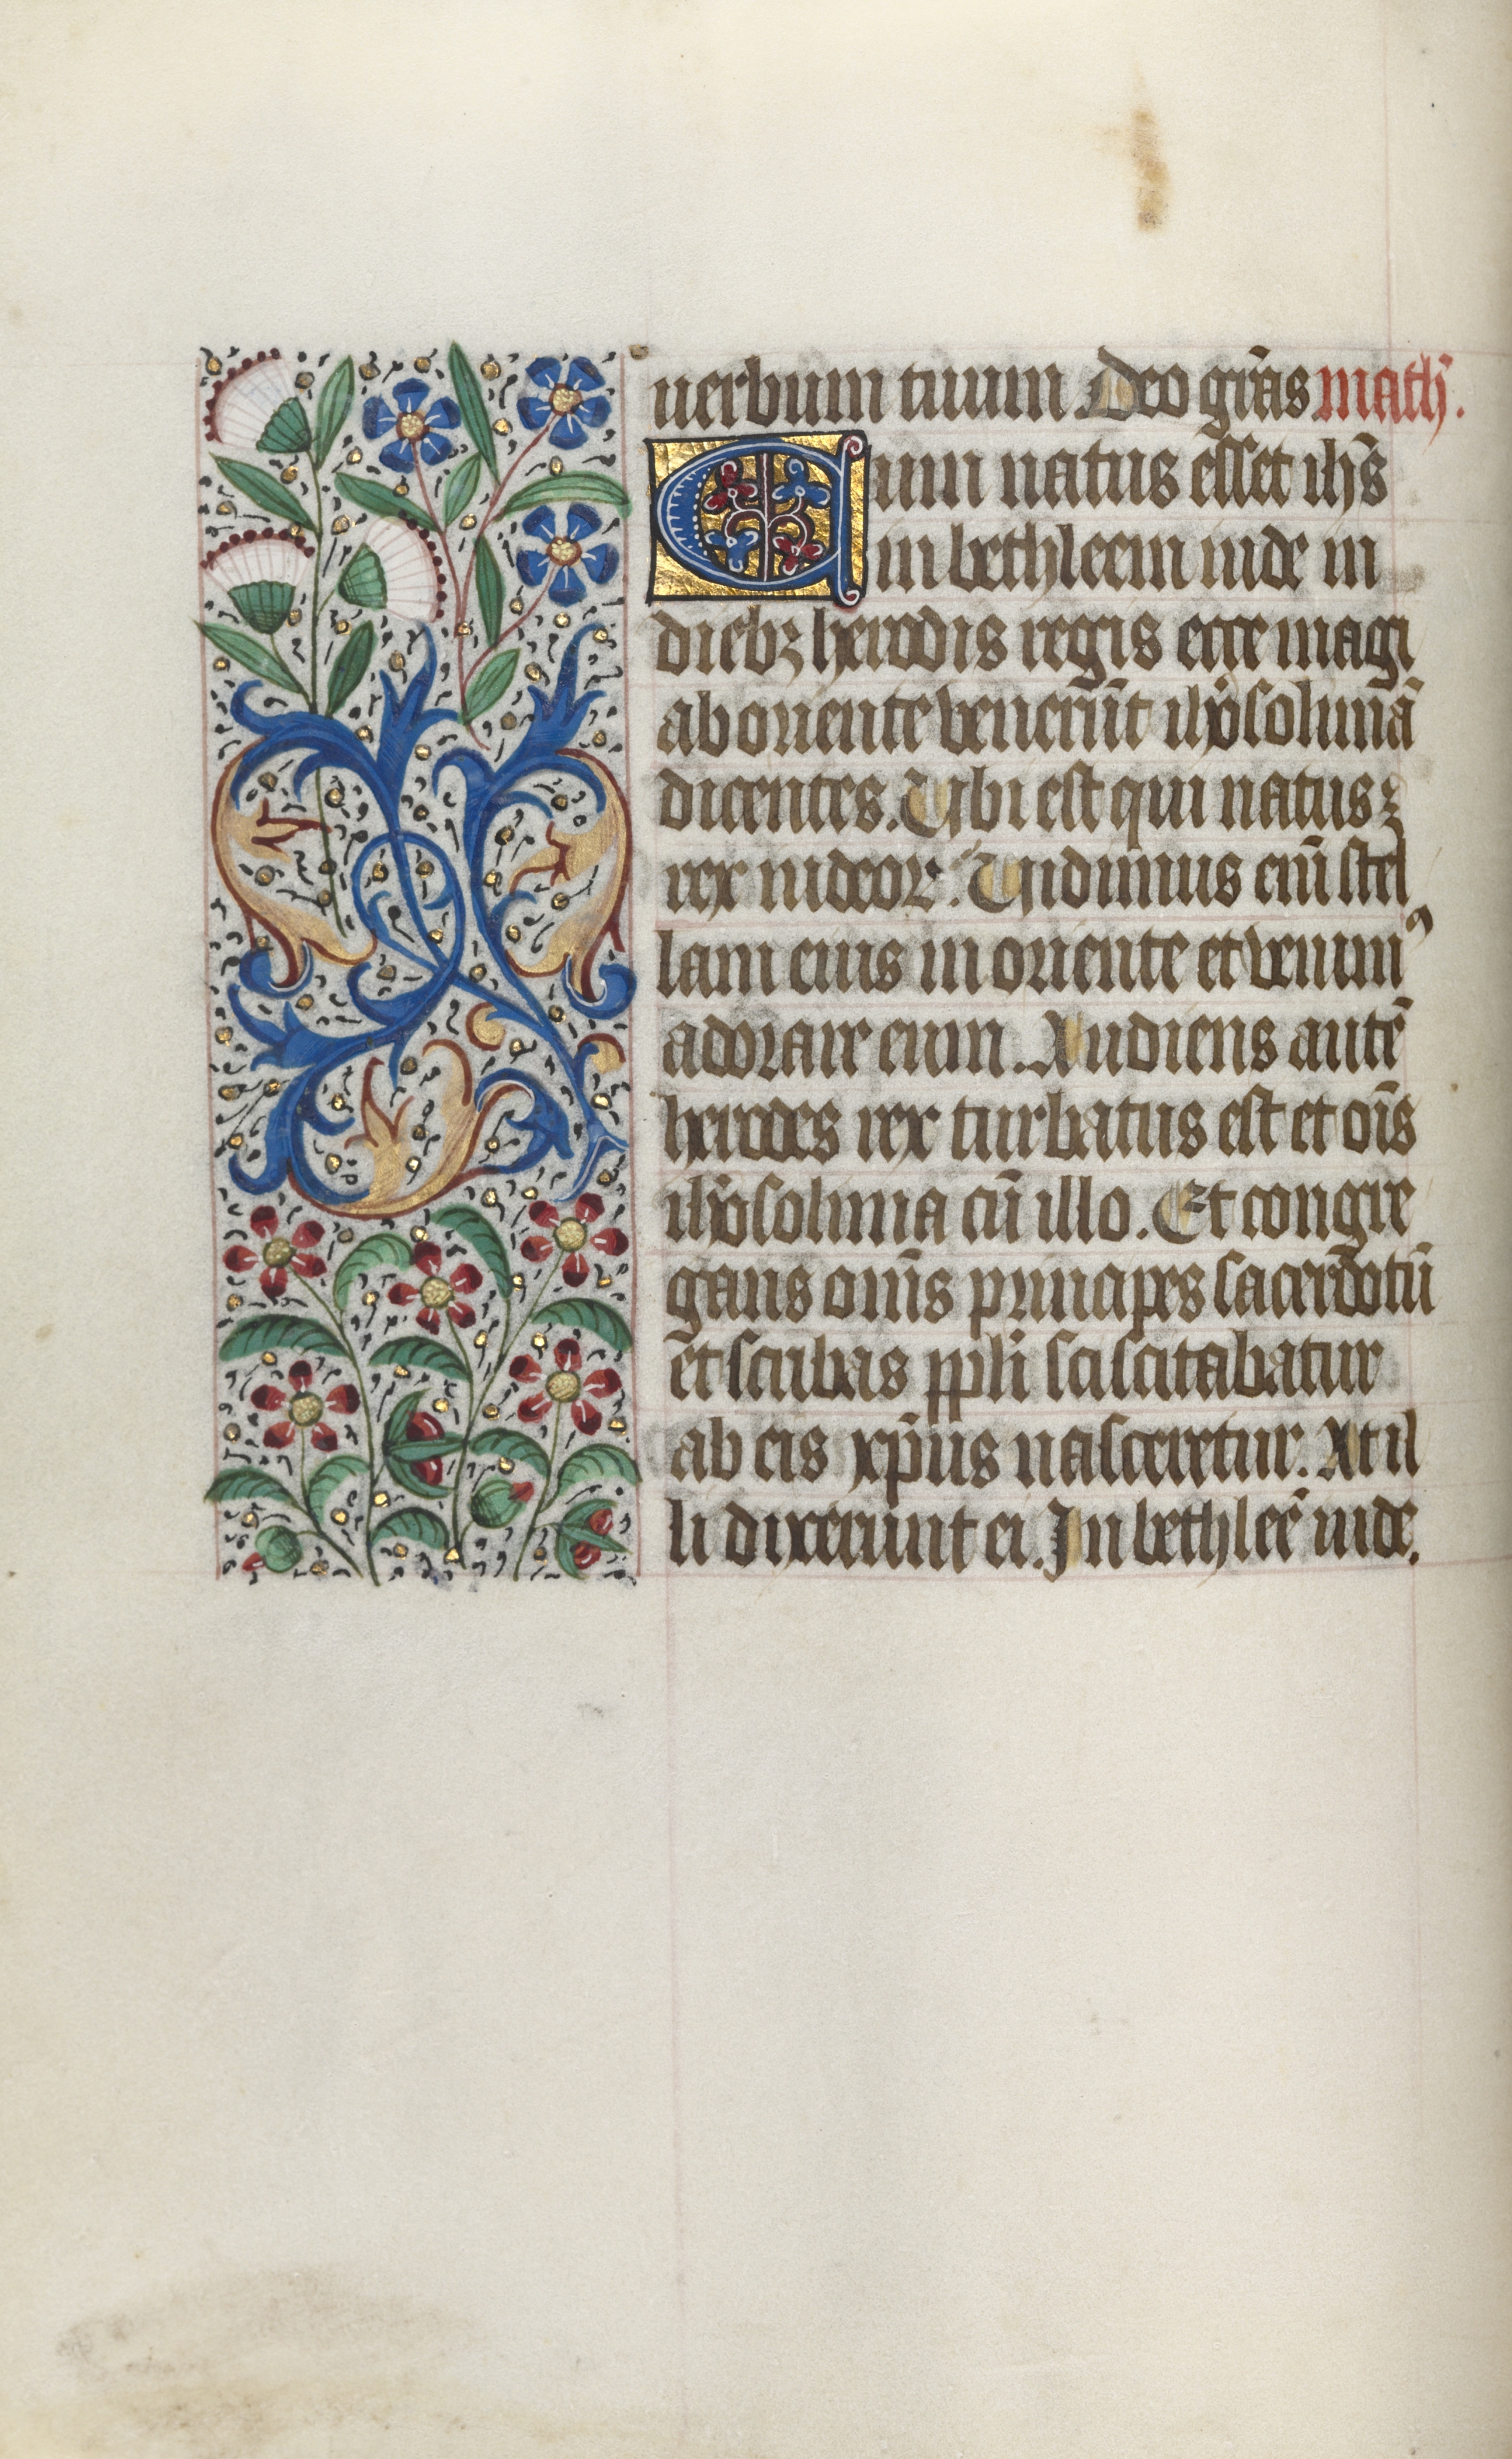 uerbum tuum Deo grãs math̃.
Cum natus esset ihs̃
in bethleem iude in
diebꝫ herodis regis ecce magi
ab oriente venerũt ihr̃osolimã
dicentes. Ubi est qui natus ꝫ
rex iudeoꝝ. Uidimus enĩ stel
lam eius in oriente et venimꝰ
adorare eum. Audiens autẽ
herodes rex turbatus est et oĩs
ihr̃osolima cũ illo. Et congre
gans omñs principes sacerdotũ
et scribas ppli sciscitabatur
ab eis xp̃us nasceretur. At il
li dixerunt ei. In bethleẽ iude.